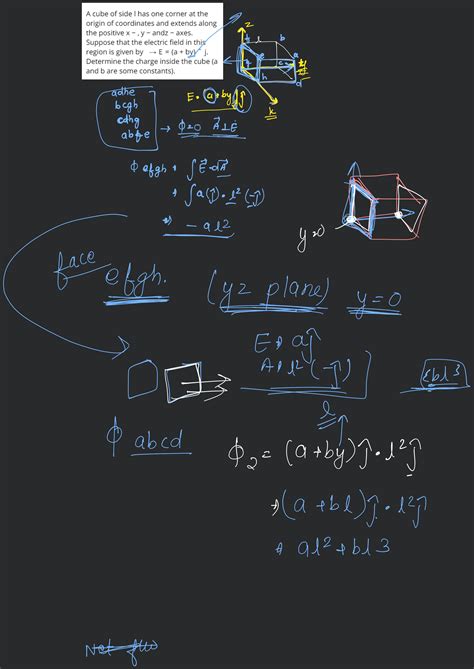 A cube of side l has one corner at the
origin of coordinates and extends along
the positive x − , y − andz − axes.
Suppose that the electric field in this
region is given by → E = (a + by) j.
Determine the charge inside the cube (a
and b are some constants).
z
l
b
a
e
c
h
d
k
adhe
bcgh
cdhg
abfe
E = a + by ĵ
→ ϕ=0 A⊥E
ϕ efgh = ∫ E·dA
= ∫ a(ĵ) · l² (-ĵ)
⇒ - al²
y=0
face
efgh.
(yz plane)
y=0
E = aĵ
A = l² (-ĵ)
εbl3
l
ϕ abcd
ϕ2 = (a+by)ĵ · l²ĵ
⇒ (a + bl) ĵ · l²ĵ
⇒ al² + bl3
Net flux